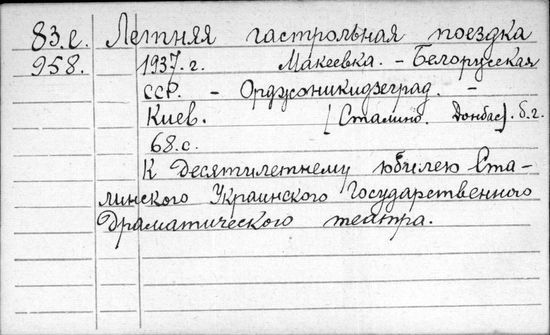 83.е. Летняя гастрольная поездка
958. 1937.г. Макеевка. - Белорусская
ССР. - Орджоникидзеград. -
Киев. [Сталино. Донбас]. б.г.
68.с.
К Десятилетнему юбилею Ста-
линского Украинского Государственного
Драматического театра.